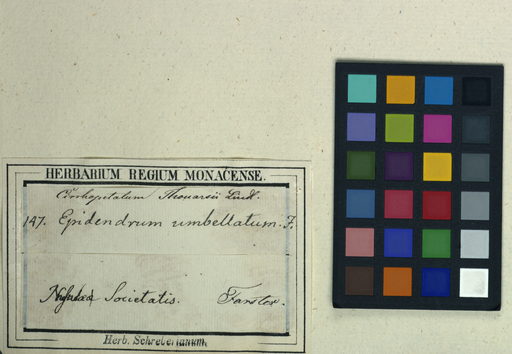 HERBARIUM REGIUM MONACENSE.
Cirrhopetalum Thouarsii Lindl.
147. Epidendrum umbellatum. F.
Societatis. Forster.
Herb. Schreberianum.